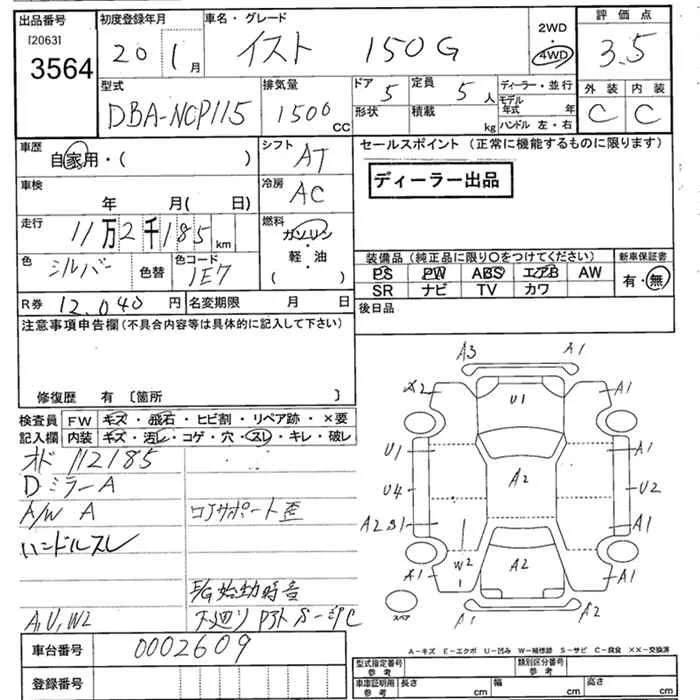 出品番号
[2063]
3564
初度登録年月
20 1月
車名・グレード
イスト 150G
2WD
4WD
評価点
3.5
外装 内装
C C
型式
DBA-NCP115
排気量
1500CC
ドア 5
形状
定員 5人
積載 kg
ディーラー・並行
モデル年式 年
ハンドル 左・右
車歴
自家用・( )
シフト
AT
セールスポイント (正常に機能するものに限ります)
ディーラー出品
車検
年 月( 日)
冷房
AC
走行
11万2千185km
燃料
ガソリン
・
軽・油
( )
色
シルバー
色替
色コード
1E7
装備品 (純正品に限り〇をつけてください)
PS PW ABS エアB AW
SR ナビ TV カワ
新車保証書
有・無
R券 12,040円
名変期限 月 日
後日品
注意事項申告欄(不具合内容等は具体的に記入して下さい)
修復歴 有 〔箇所 〕
検査員記入欄
FW キズ・飛石・ヒビ割・リペア跡・×要
内装 キズ・汚レ・コゲ・穴・スレ・キレ・破レ
オド 112185
DミラーA
A/W A
コアサポート歪
ハンドルスレ
E/G始動時音
A,U,W2
下廻り
車台番号
0002609
登録番号
A3 A1
X2 U1 A1
U1 A1
A2
U4 U2
A2 S1 A1
W2 A2
A1 A1
スペア
A1 A2
A-キズ E-エクボ U-凹み W-補修跡 S-サビ C-腐食 XX-交換済
型式指定番号 参考
類別区分番号 参考
車庫証明用 参考
長さ cm
幅 cm
高さ cm